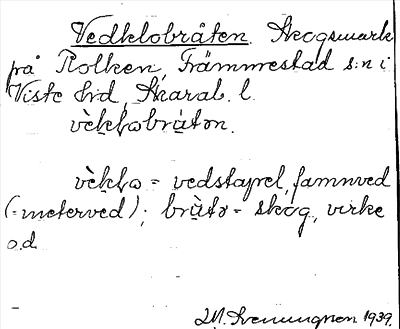 Vedklobråten. Skogsmark
på Rolken, Främmestad s:n i
Viste hd, Skarab. l.
vèkḷobrù̀tən.
vèkḷo = vedstapel, famnved
(=meterved); brùtə = skog, virke
o.d.
1939.